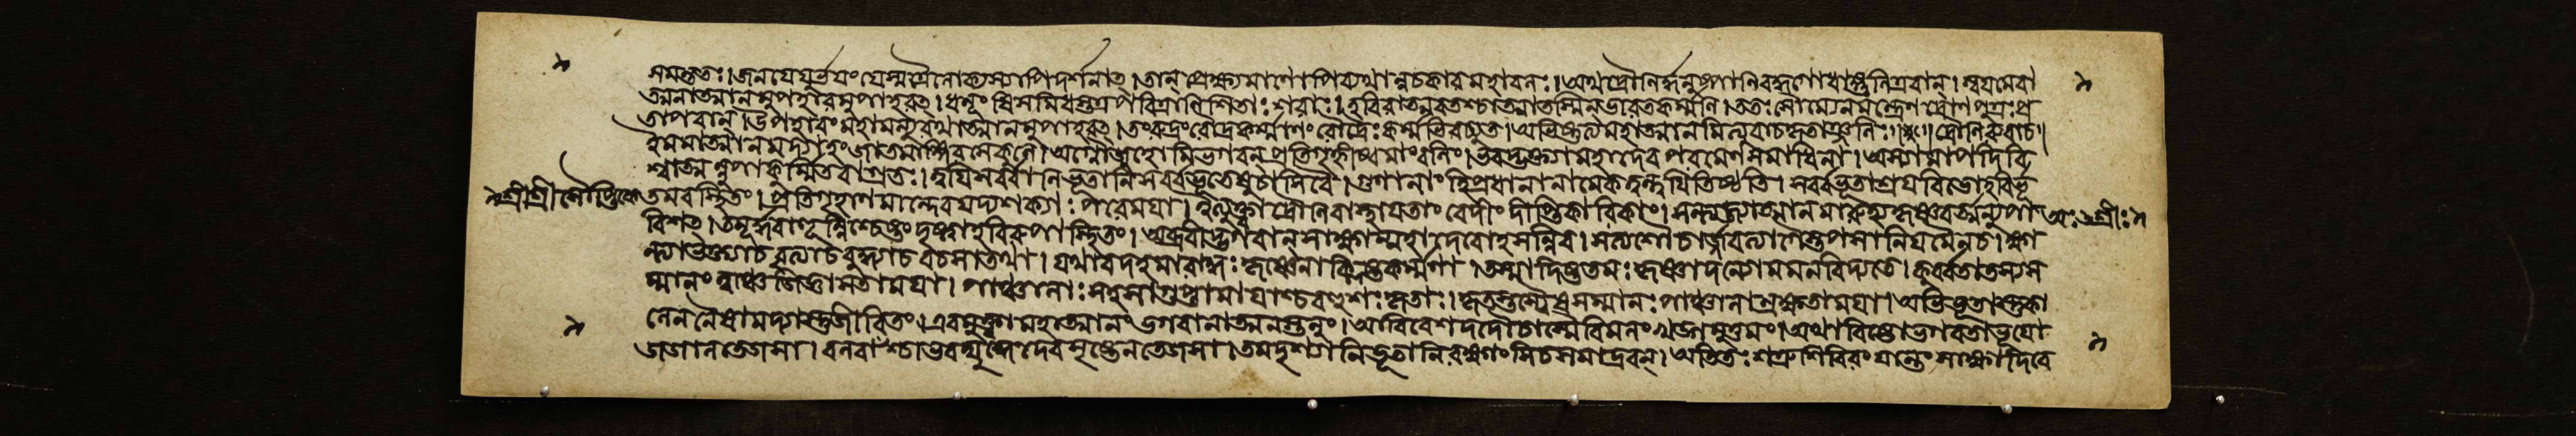 সমন্ততঃ।জনয়েয়ুর্ভয়ং যেস্মত্রৈলোক্যস্যাপিদর্শনাত্।তান্ প্রেক্ষ্যমাণোপিব্যথান্নচকারমহাবলঃ।অথদ্রৌণির্দ্ধনুষ্পাণির্বদ্ধগোধাঙ্গুলিত্রবান্। স্বয়মেবা
ত্মনাত্মানমুপহারমুপাহরত্। ধনূংষিসমিধস্তত্রপবিত্রাণিশিতাঃশরাঃ। হবিরাত্মবতশ্চাত্মাতস্মিন্ভারতকর্ম্মণি। ততঃসৌম্যেনমন্ত্রেণদ্রোণপুত্রঃপ্র
তাপবান্।উপহারংমহামন্যুরথাত্মানমুপাহরত্। তংরুদ্রংরৌদ্রকর্ম্মাণংরৌদ্রৈঃকর্ম্মভিরচ্যুতং।অভিষ্টুত্যমহাত্মানমিত্যুবাচকৃতাঞ্জলিঃ।।দ্রৌণিরুবাচ॥
ইমমাত্মানমদ্যাহংজাতমাঙ্গিরসেকুলে। অগ্নৌজুহোমিভগবন্প্রতিগৃহ্ণীষ্বমাংবলিং।ভবদ্ভক্ত্যামহাদেবপরমেণসমাধিনা।অস্যামাপদিবি
শ্বাত্মন্নুপাকুর্ম্মিতবাগ্রতঃ।ত্বয়িসর্ব্বাণিভূতানিসর্ব্বভূতেষুচাসিবৈ। গুণানাংহিপ্রধানানামেকত্বন্ত্বয়িতিষ্ঠতি। সর্ব্বভূতাশ্রয়বিভোহবির্ভূ
শ্রীশ্রীসৌপ্তিকে তমবস্থিতং।প্রতিগৃহাণমান্দেবযদ্যশক্যাঃপরেময়া। ইত্যুক্ত্বাদ্রৌণিরাস্থায়তাংবেদীংদীপ্ত সন্ত্যজ্যাত্মানমারুহ্যকৃষ্ণবর্ত্মন্যুপা শ্রীঃ
বিশত্।তমূর্দ্ধবাহুন্নিশ্চেষ্টংদৃষ্ট্বাহবিরুপস্থিতং।অব্রবীদ্ভগবান্সাক্ষান্মহাদেবোহসন্নিব। সত্যশৌচার্জ্জবত্যাগৈস্তপসানিয়মেনচ।ক্ষা
ন্ত্যাভক্ত্যাচধৃত্যাচবুদ্ধ্যাচবচসাতথা। যথাবদহমারাদ্ধঃকৃষ্ণেনাক্লিষ্টকর্ম্মণা।তস্মাদিষ্টতমঃকৃষ্ণাদন্যোমমনবিদ্যতে। কুর্ব্বতাতস্যস
ম্মানংত্বাঞ্চজিজ্ঞাসতাময়া। পাঞ্চালাঃসহসাগুপ্তামায়াশ্চবহুশঃকৃতাঃ। কৃতস্তস্যৈষসম্মানঃপাঞ্চালান্রক্ষতাময়া।অভিভূতাস্তুকা
লেননৈষামদ্যাস্তিজীবিতং।এবমুক্ত্বামহাত্মানংভগবানাত্মনস্তনুং। আবিবেশদদৌচাস্মৈবিমলংখড়্গমুত্তমং।অথাবিষ্টোভগবতাভূয়ো
জজ্বালতেজসা। বলবাঁশ্চাভবদ্যুদ্ধেদেবসৃষ্টেনতেজসা।তমদৃশ্যানিভূতানিরক্ষাংসিচসমাদ্রবন্। অভিতঃশত্রুশিবিরংযান্তংসাক্ষাদিবে